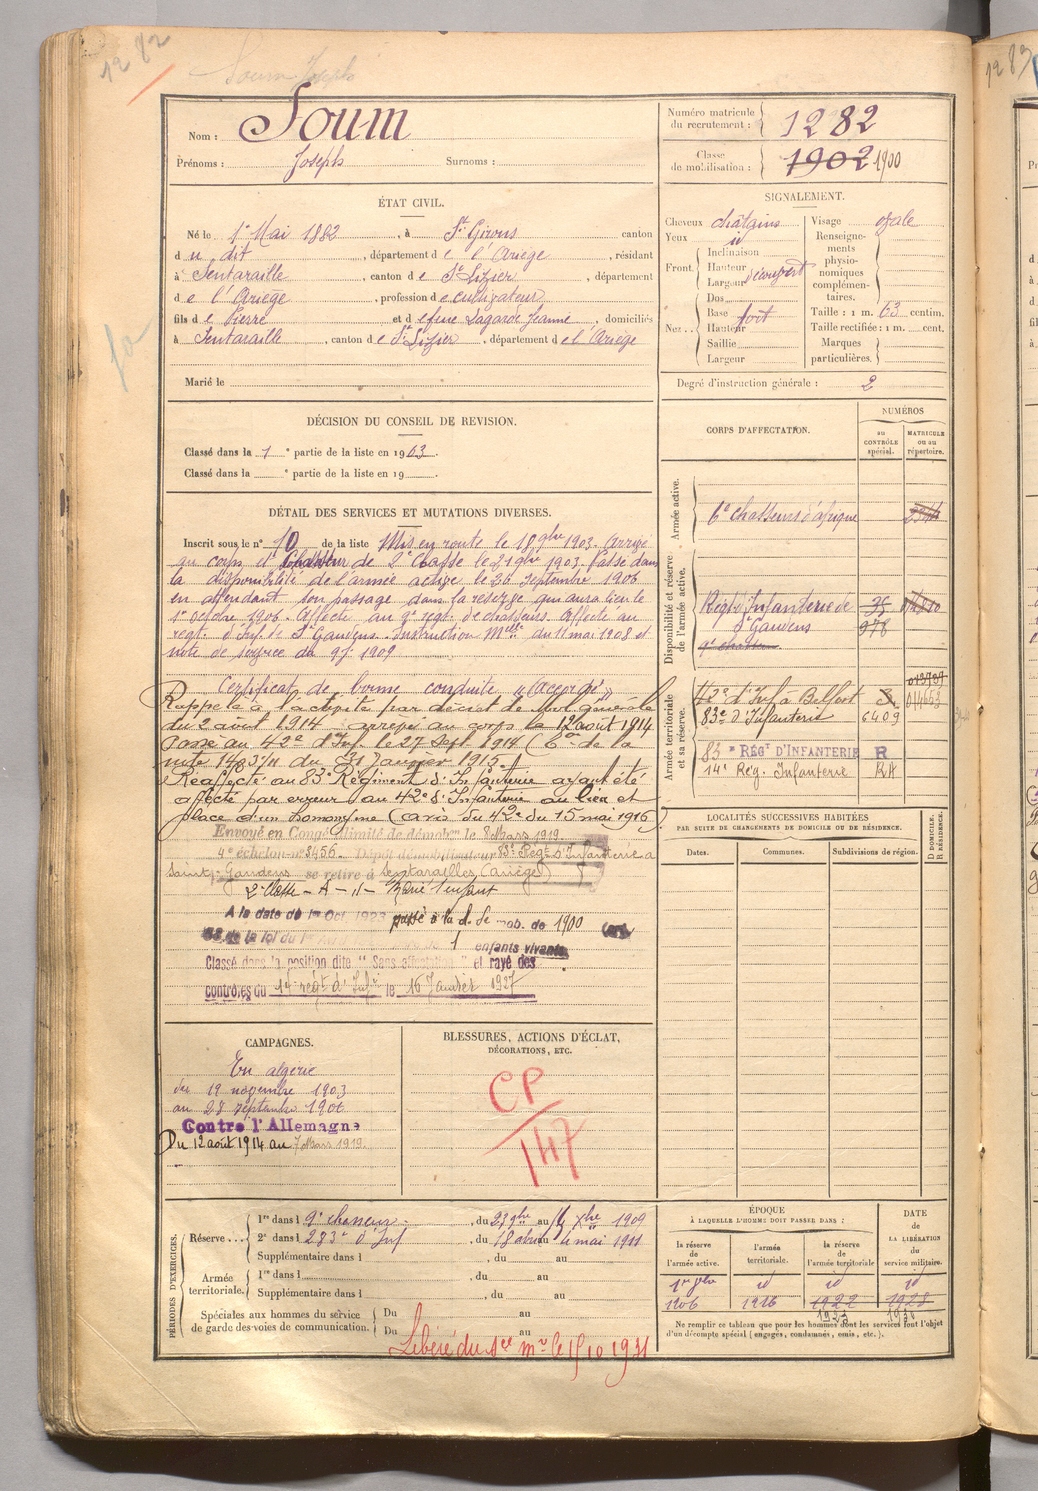 1282
Soum Joseph
Nom : Soum
Prénoms : Joseph Surnoms :
Numéro matricule du recrutement : 1282
Classe de mobilisation : 1902 1900
ÉTAT CIVIL.
Né le 1er Mai 1882, à St Girons canton
d u dit, département d e l'Ariège, résidant
à Sentaraille, canton d e St Lizier, département
d e l'Ariège, profession d e cultivateur
fils d e Pierre et d e fue Lagarde Jeanne, domiciliés
à Sentaraille, canton d e St Lizier, département d e l'Ariège
Marié le
SIGNALEMENT.
Cheveux châtains Visage ovale
Yeux id
Front Inclinaison
Hauteur découvert
Largeur
Nez Dos
Base fort
Hauteur
Saillie
Largeur
Renseignements physionomiques complémentaires.
Taille : 1 m. 63 centim.
Taille rectifiée : 1 m. cent.
Marques particulières.
Degré d'instruction générale : 2
DÉCISION DU CONSEIL DE REVISION.
Classé dans la 1e partie de la liste en 1903.
Classé dans la e partie de la liste en 19 .
CORPS D'AFFECTATION.
NUMÉROS
au CONTRÔLE spécial.
MATRICULE ou au répertoire.
Armée active.
6e chasseurs d'afrique
Disponibilité et réserve de l'armée active.
Régt d'Infanterie de
St Gaudens 978
9e chasseurs
Armée territoriale et sa réserve.
42e d'Inf à Belfort
83e d'Infanterie 6409
83e RÉGT D'INFANTERIE R
14e Rég. Infanterie RA
DÉTAIL DES SERVICES ET MUTATIONS DIVERSES.
Inscrit sous le n° 10 de la liste Mis en route le 18 9bre 1903. Arrivé
au corps et Chasseur de 2e Classe le 21 9bre 1903. Passé dans
la disponibilité de l'armée active le 26 Septembre 1906
en attendant son passage dans la réserve qui aura lieu le
1er octobre 1906. Affecté au 9e régt. de chasseurs. Affecté au
régt. d'Inf. de St Gaudens. Instruction Melle du 11 mai 1908 et
note de service du 9 1909
Certificat de bonne conduite "Accordé"
Rappelé à l'activité par décret de Mobon générale
du 2 août 1914 - arrivé au corps le 12 août 1914
Passé au 42e d'Inf. le 27 Sept 1914 ( de la
note du 31 Janvier 1915.
Réaffecté au 83e Régiment d'Infanterie ayant été
affecté par erreur au 42e d'Infanterie au lieu et
place d'un homonyme (avis du 42e du 15 mai 1916)
Envoyé en Congé illimité de démobon le 8 Mars 1919.
4e échelon n° 3456 Dépôt démobilisateur 83e Régt d'Infanterie à
Saint-Gaudens se retire à Sentarailles (Ariège)
2e Classe - A - Marié 1 enfant
A la date du 1er Oct 1923 passé à la cl. de mob. de 1900
58 de la loi du 1er 1 enfants vivants
Classé dans la position dite "Sans affectation" et rayé des
contrôles du 14e régt d'Infie le 16 Janvier 1927
LOCALITÉS SUCCESSIVES HABITÉES
PAR SUITE DE CHANGEMENTS DE DOMICILE OU DE RÉSIDENCE.
Dates. Communes. Subdivisions de région. D DOMICILE. R RÉSIDENCE.
CAMPAGNES.
En algérie
du 19 novembre 1903
au 28 septembre 1906
Contre l'Allemagne
Du 12 août 1914 au 7 Mars 1919.
BLESSURES, ACTIONS D'ÉCLAT,
DÉCORATIONS, ETC.
CP
147
PÉRIODES D'EXERCICES.
Réserve 1re dans l 9e chasseurs, du 23 9bre au Xbre 1909
2e dans l 283e d'Inf, du 18 avril au 4 mai 1911
Supplémentaire dans l , du au
Armée territoriale. 1re dans l , du au
Supplémentaire dans l , du au
Spéciales aux hommes du service de garde des voies de communication. Du au
Du au
Libéré du sce mre le 15 10 1931
ÉPOQUE
À LAQUELLE L'HOMME DOIT PASSER DANS :
la réserve de l'armée active. l'armée territoriale. la réserve de l'armée territoriale
DATE de LA LIBÉRATION du service militaire.
id id id
1906 1916 1922 1928
1923
Ne remplir ce tableau que pour les hommes dont les services font l'objet
d'un décompte spécial (engagés, condamnés, omis, etc.).